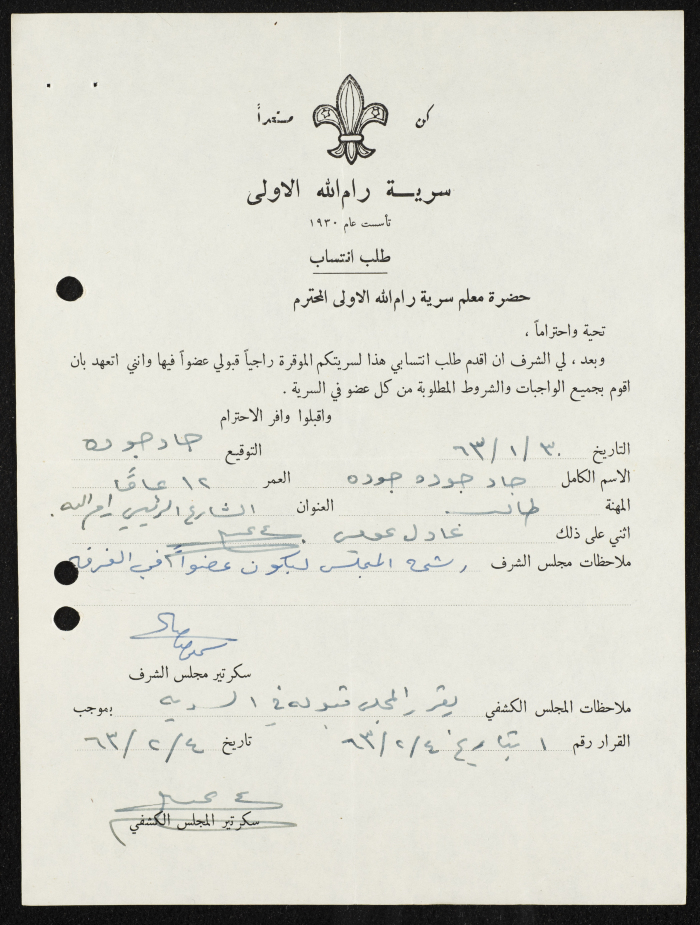 كن مستعداً
سريـــة رام الله الاولى
تأسست عام ١٩٣٠
طلب انتساب
حضرة معلم سرية رام الله الاولى المحترم
تحية واحتراماً ،
وبعد ، لي الشرف ان اقدم طلب انتسابي هذا لسريتكم الموقرة راجياً قبولي عضواً فيها وانني اتعهد بان
اقوم بجميع الواجبات والشروط المطلوبة من كل عضو في السرية .
واقبلوا وافر الاحترام
التاريخ ٣٠/١/٦٣ التوقيع جاد جوده
الاسم الكامل جاد جوده جوده العمر ١٢ عامًا
المهنة طالب العنوان الشارع الرئيسي رام الله .
اثني على ذلك عادل
ملاحظات مجلس الشرف رشحه المجلس ليكون عضواً في الفرقة
سكرتير مجلس الشرف
ملاحظات المجلس الكشفي يقرر المجلس قبوله في السريه بموجب
القرار رقم ١ بتاريخ ٦٣/٢/٤ تاريخ ٦٣/٢/٤
سكرتير المجلس الكشفي